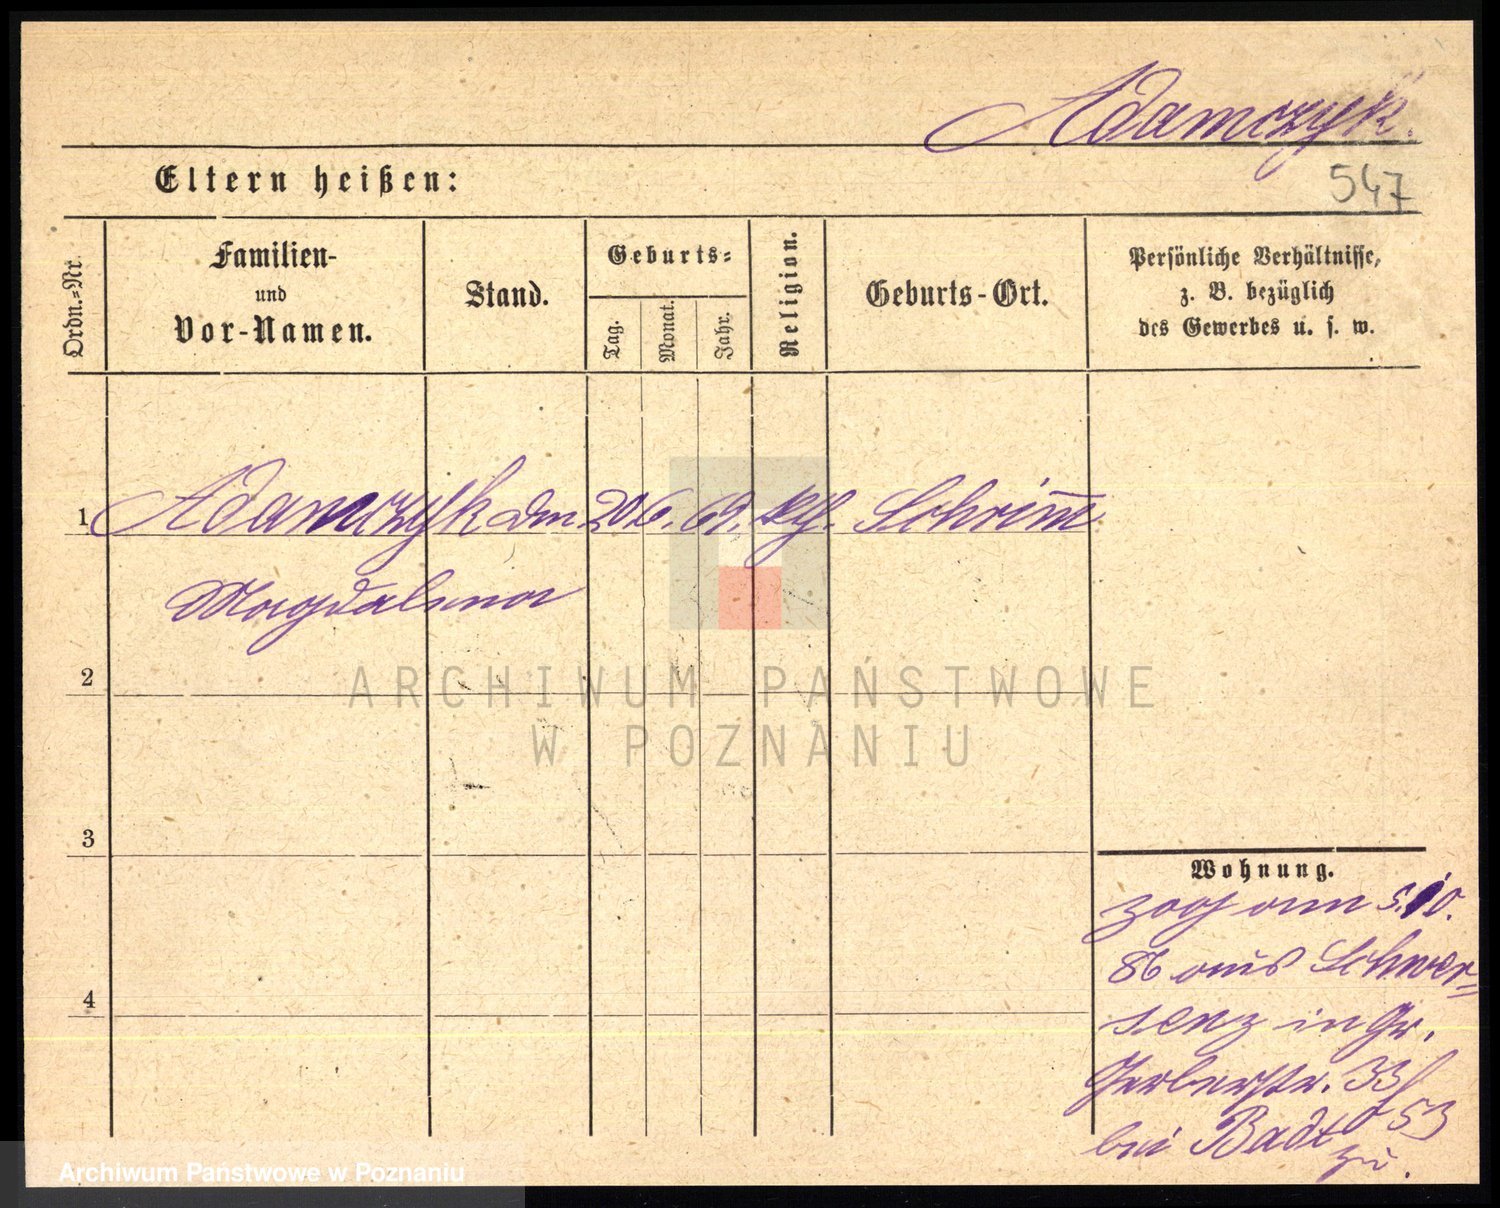 Adamczyk.
Eltern heißen:
547
Ordn.-Nr.
Familien-
und
Vor-Namen.
Stand.
Geburts-
Tag.
Monat.
Jahr.
Religion.
Geburts-Ort.
Persönliche Verhältnisse,
z. B. bezüglich
des Gewerbes u. s. w.
1 Adamczyk 20 6. 69. kth. Schrimm
Magdalena
2
ARCHIWUM PAŃSTWOWE
W POZNANIU
3
4
Wohnung.
zog am 5.10.
86 aus Schwer-
senz in Gr.
Gerberstr. 33
bei Badt 53
zu.
Archiwum Państwowe w Poznaniu